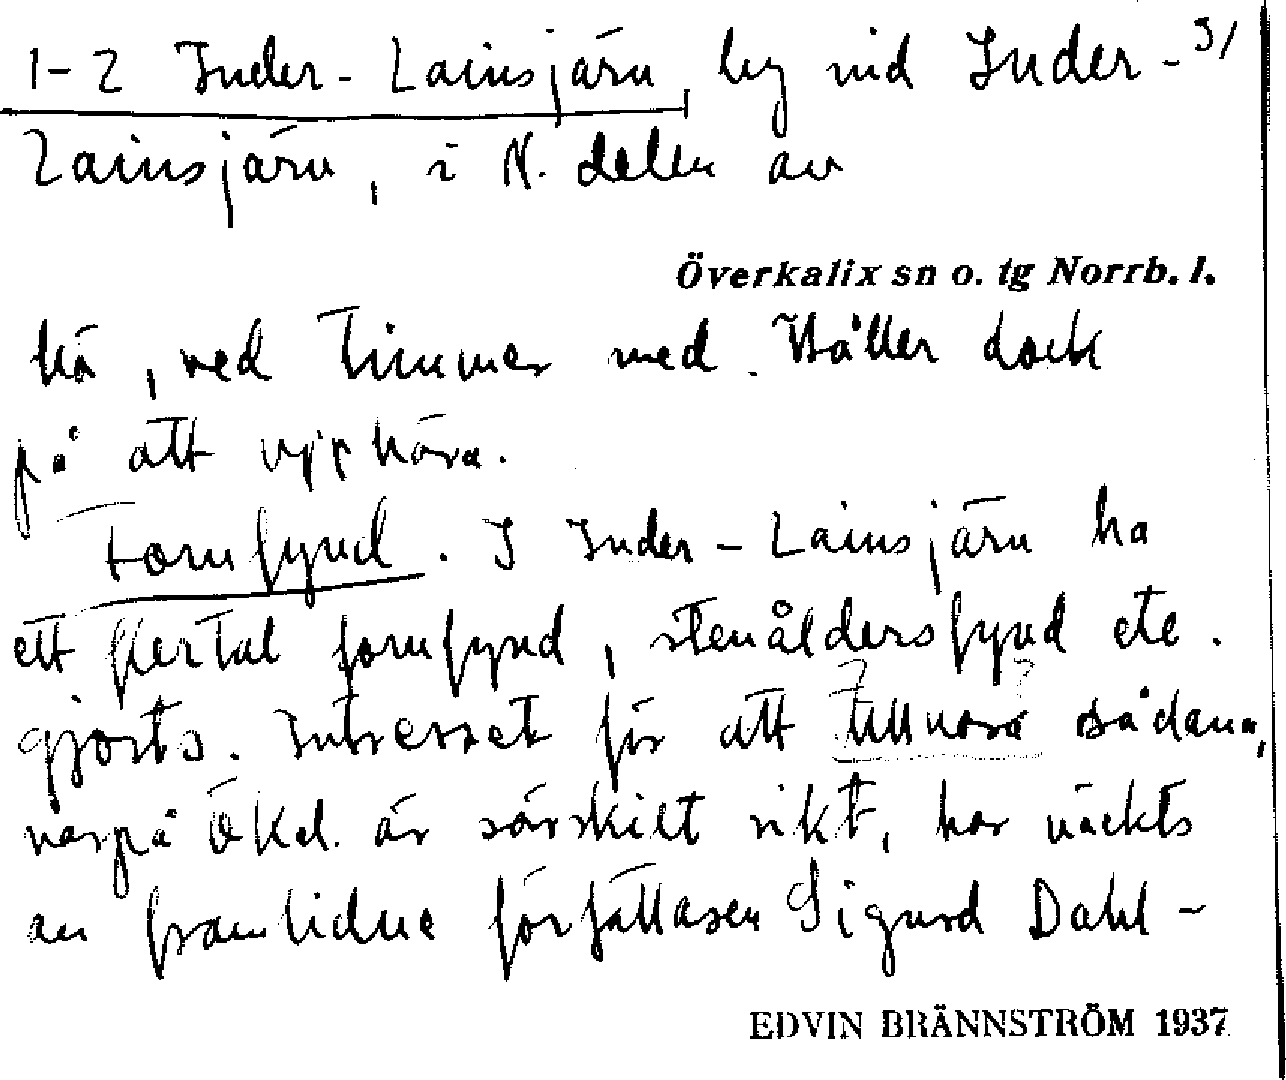 1-2 Inder-Lainsjärv, by vid Inder- 3/
Lainsjärv, i N. delen av
Överkalix sn o. tg Norrb. l.
hö, ved timmer med. Håller dock
på att upphöra.
Fornfynd. I Inder-Lainsjärv ha
ett flertal fornfynd, stenåldersfynd etc.
gjorts. Intresset för att tillvara sådana,
varpå Ökal. är särskilt rikt, har väckts
av framlidne författaren Sigurd Dahl-
EDVIN BRÄNNSTRÖM 1937